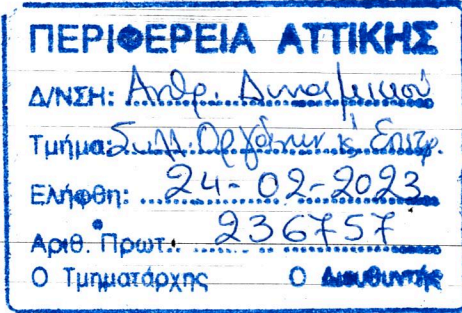 ΠΕΡΙΦΕΡΕΙΑ ΑΤΤΙΚΗΣ
Δ/ΝΣΗ: Ανθρ. Δυναμικού
Τμήμα: Συλλ. Οργάνων κ' Επιτρ.
Ελήφθη: 24-02-2023
Αριθ. Πρωτ.: 236757
Ο Τμηματάρχης Ο Διευθυντής